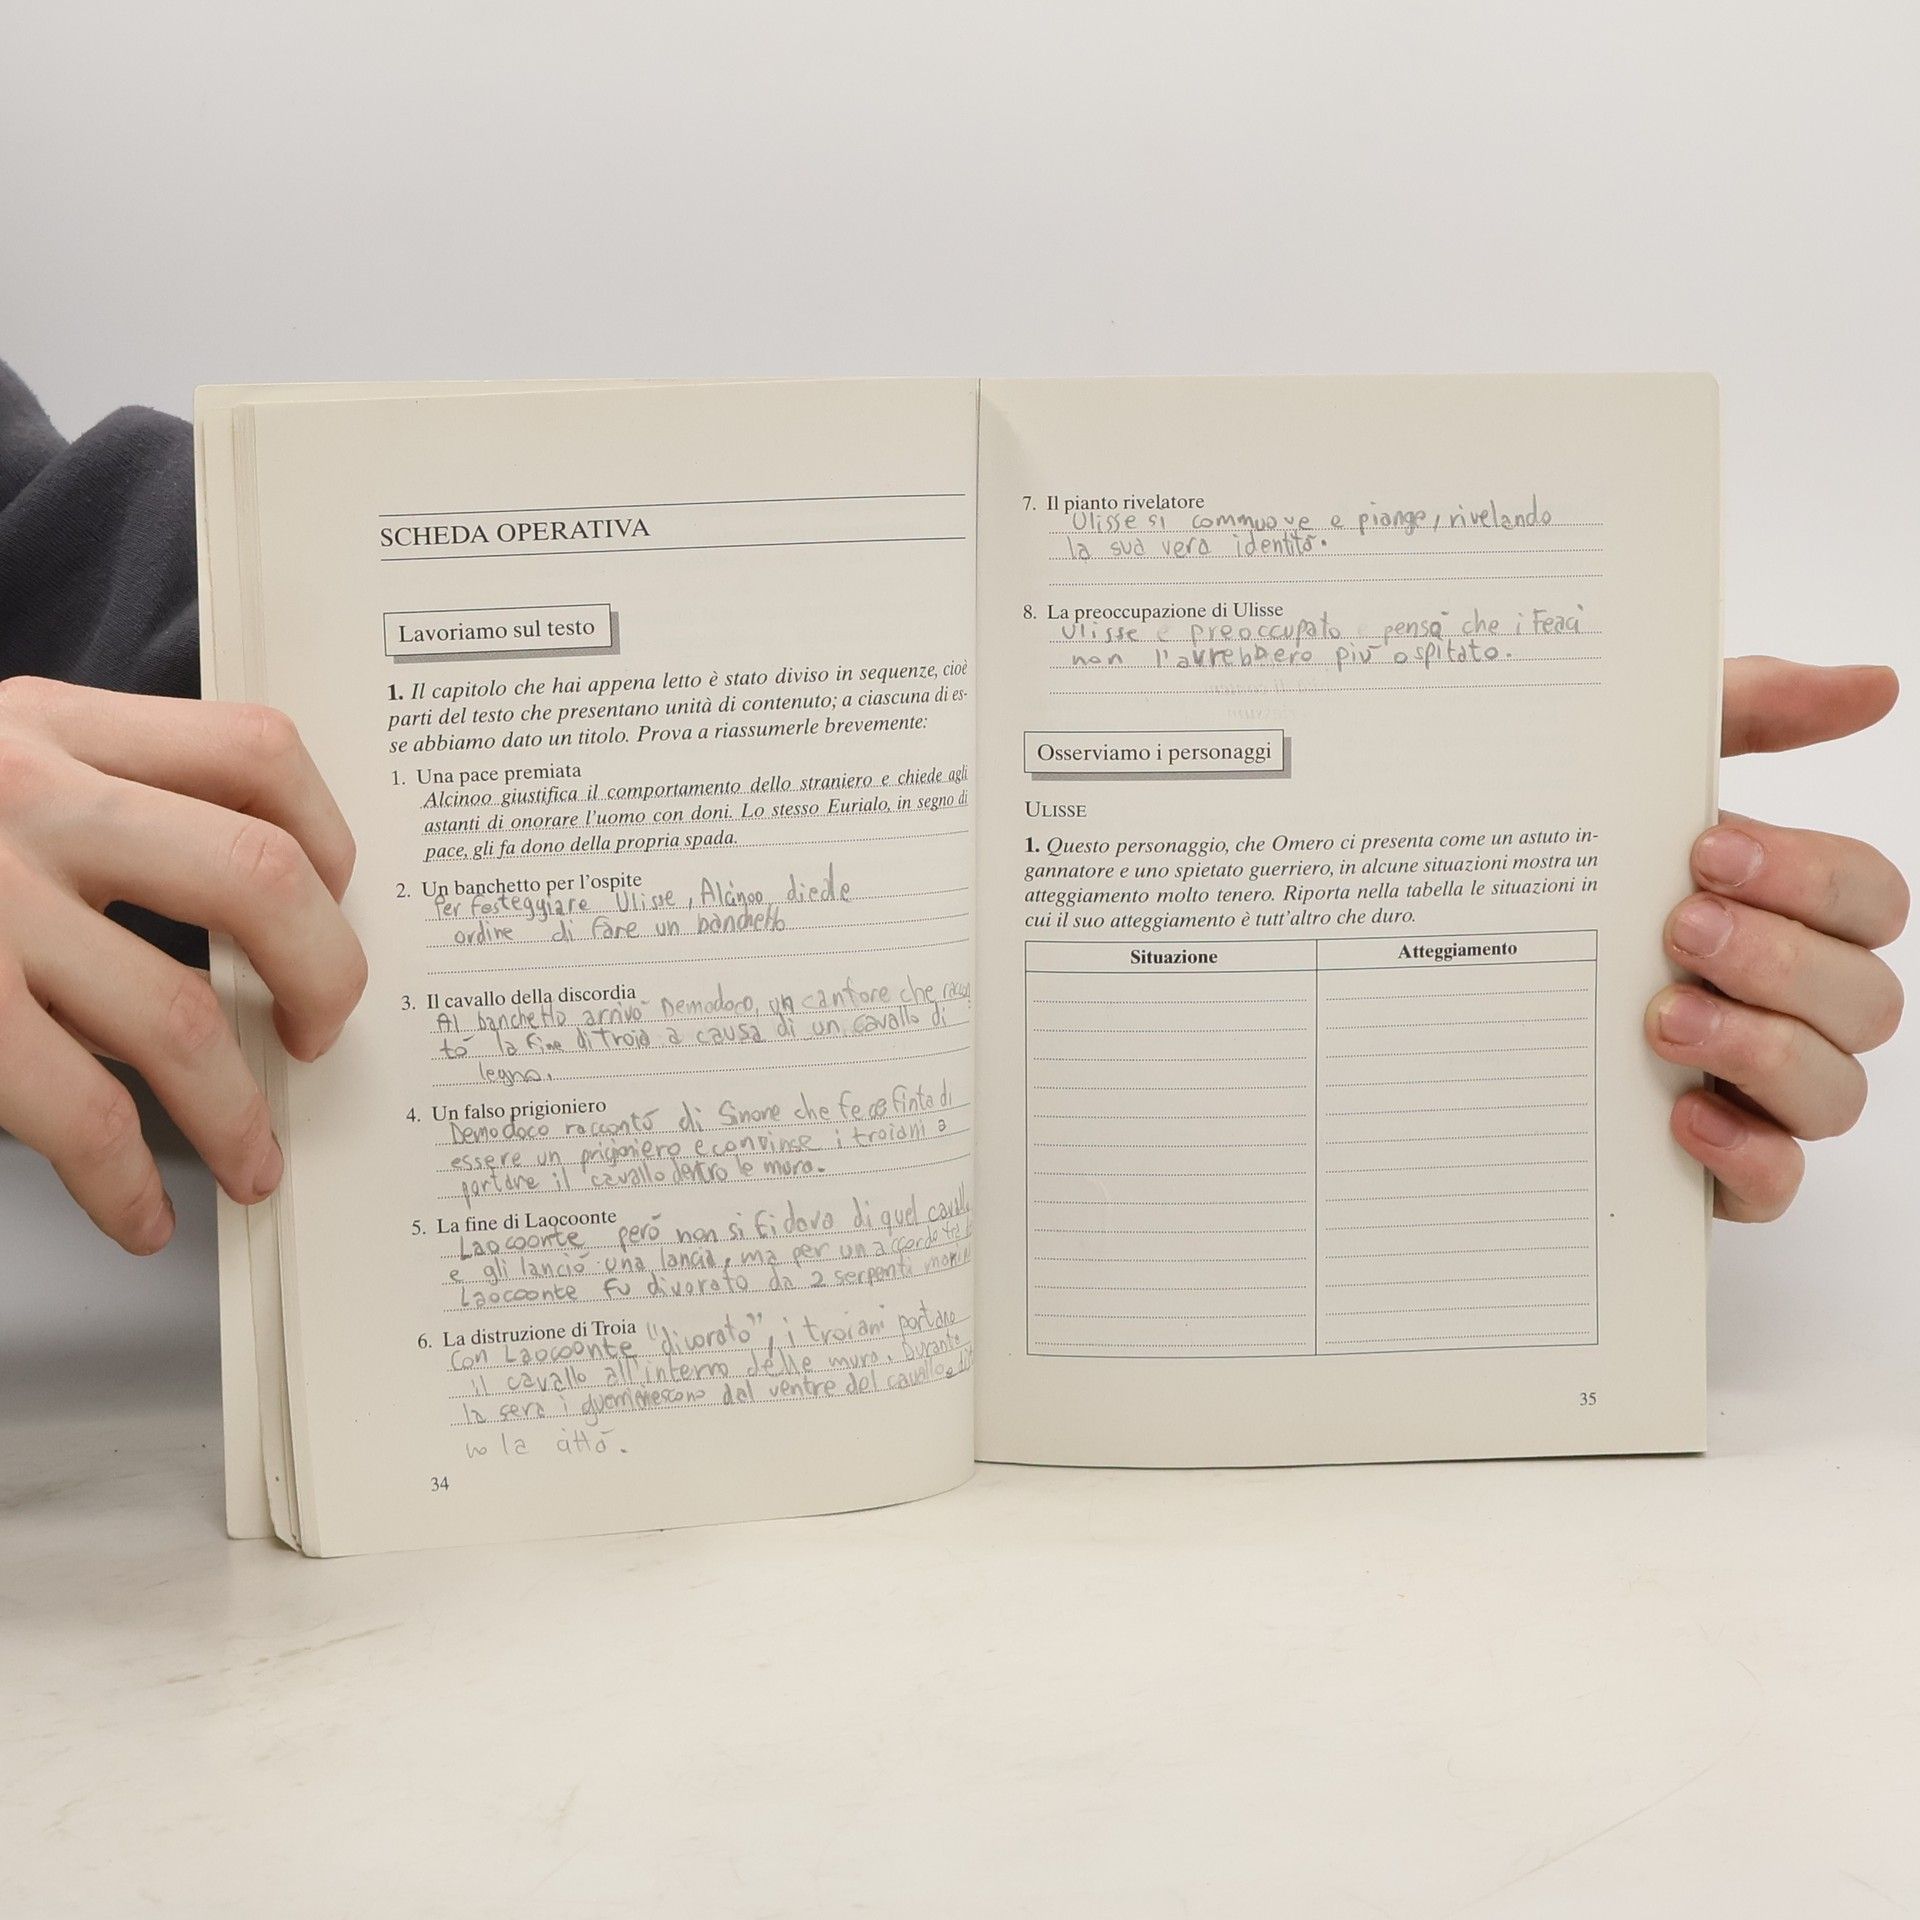 SCHEDA OPERATIVA
Lavoriamo sul testo
1. Il capitolo che hai appena letto è stato diviso in sequenze, cioè
parti del testo che presentano unità di contenuto; a ciascuna di es-
se abbiamo dato un titolo. Prova a riassumerle brevemente:
1. Una pace premiata
Alcinoo giustifica il comportamento dello straniero e chiede agli
astanti di onorare l'uomo con doni. Lo stesso Eurialo, in segno di
pace, gli fa dono della propria spada.
2. Un banchetto per l'ospite
Per festeggiare Ulisse, Alcinoo diede
ordine di fare un banchetto
3. Il cavallo della discordia
Al banchetto arrivò Demodoco, un cantore che raccon
tò la fine di Troia a causa di un cavallo di
legno.
4. Un falso prigioniero
Demodoco raccontò di Sinone che fece finta di
essere un prigioniero e convinse i troiani a
portare il cavallo dentro le mura.
5. La fine di Laocoonte
Laocoonte però non si fidava di quel cavallo
e gli lanciò una lancia, ma per un accordo tra
Laocoonte fu divorato da 2 serpenti marini
6. La distruzione di Troia
Con Laocoonte "divorato", i troiani portano
il cavallo all'interno delle mura. Durante
la sera i guerrieri escono dal ventre del cavallo e
no la città.
34
7. Il pianto rivelatore
Ulisse si commuove e piange, rivelando
la sua vera identità.
8. La preoccupazione di Ulisse
Ulisse è preoccupato e pensò che i Feaci
non l'avrebbero più ospitato.
Osserviamo i personaggi
ULISSE
1. Questo personaggio, che Omero ci presenta come un astuto in-
gannatore e uno spietato guerriero, in alcune situazioni mostra un
atteggiamento molto tenero. Riporta nella tabella le situazioni in
cui il suo atteggiamento è tutt'altro che duro.
Situazione Atteggiamento
35